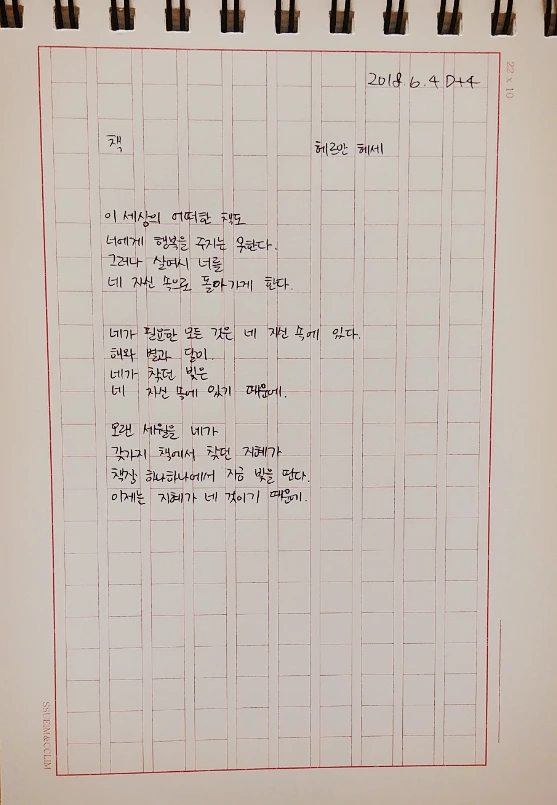 2018. 6. 4 D+4
22 x 10
책 헤르만 헤세
이 세상의 어떠한 책도
너에게 행복을 주지는 못한다.
그러나 살며시 너를
네 자신 속으로 돌아가게 한다.
네가 필요한 모든 것은 네 자신 속에 있다.
해와 별과 달이.
네가 찾던 빛은
네 자신 속에 있기 때문에.
오랜 세월을 네가
갖가지 책에서 찾던 지혜가
책장 하나하나에서 지금 빛을 띤다.
이제는 지혜가 네 것이기 때문에.